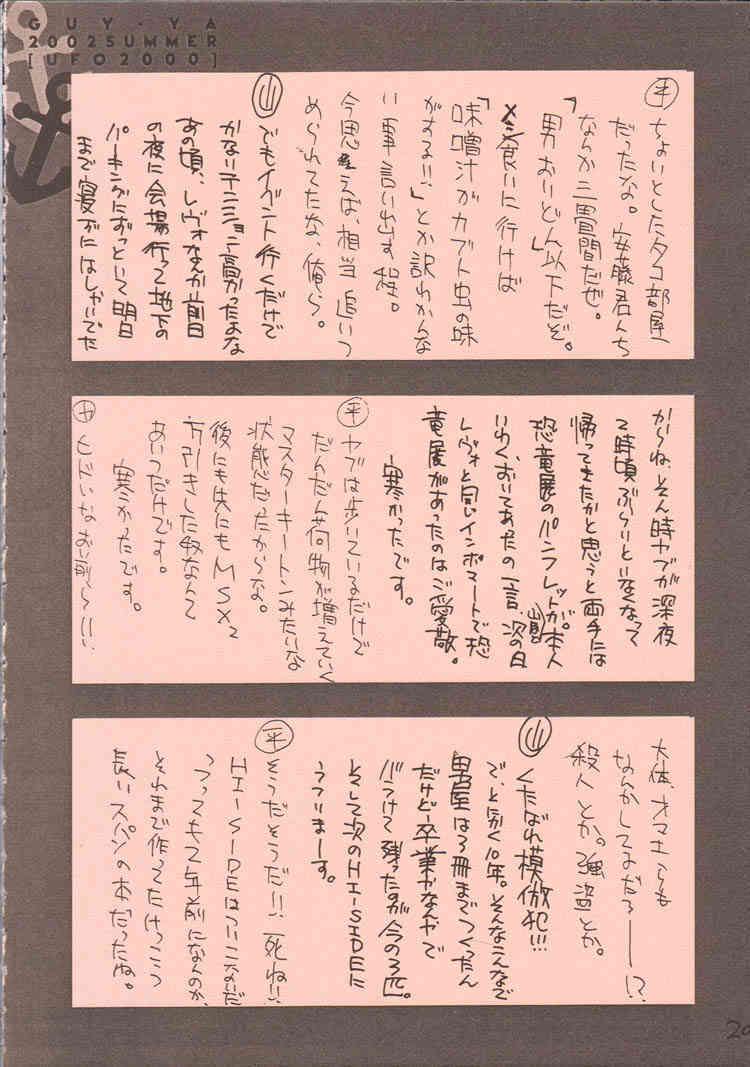 GUY・YA
2002SUMMER
[UFO2000]
平
ちょいとしたタコ部屋
だったな。安藤君んち
なんか三畳間だぜ。
「男おいどん」以下だぞ。
メシ食いに行けば
「味噌汁がカブト虫の味
がする!!」とか訳わかんな
い事言い出す程。
今思えば、相当追いつ
められてたな、俺ら。
山
でもイベント行くだけで
かなりテンション高かったよな
あの頃、レヴォなんか前日
の夜に会場行って地下の
パーキングにずっといて明日
まで寝ずにはしゃいでた
から。ね、そん時ヤブが深夜
2時頃ぶらりといなくなって
帰ってきたかと思うと両手には
恐竜展のパンフレットが。本人
いわく、おいてあったの一言、次の日
レヴォと同じインポマートで恐
竜展があったのはご愛敬。
寒かったです。
平
ヤブは歩いているだけで
だんだん荷物が増えていく
マスターキートンみたいな
状態だったからな。
後にも先にもMSX2
万引きした奴なんて
あいつだけです。
寒かったです。
ヤ
ヒドいなお前ら!!
大体、オマエらも
なんかしてるだろーー!?
殺人とか。強盗とか。
山
くたばれ模倣犯!!!
で、と別く10年。そんなこんなで
男屋は3冊までつくったん
だけど卒業やなんやで
バラけて残ったのが今の3匹。
そして次のHI-SIDEに
うつりまーす。
平
そうだそうだ!!死ね!!
HI-SIDEはついこないだ
つってもう2年前になんのか、
それまで作ってたけっこう
長いスパンの本だったね。